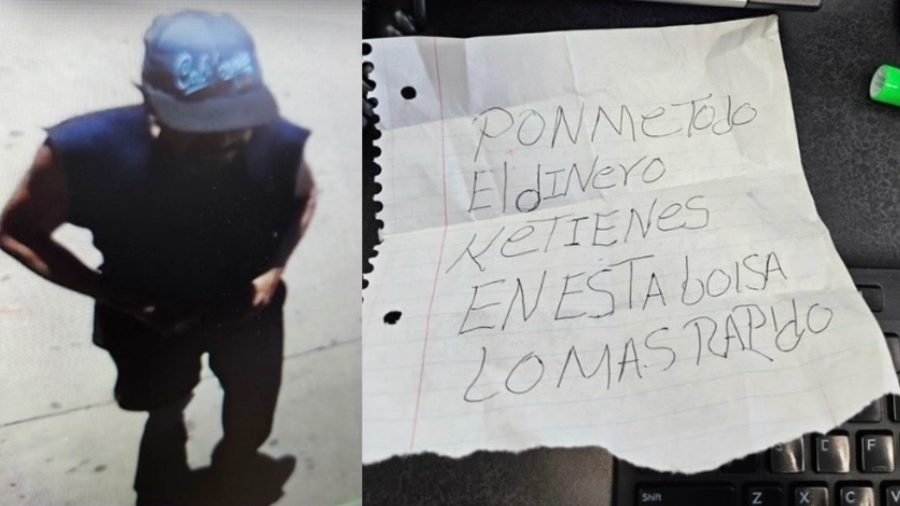 PONMe TODO
El dINero
KeTIENES
EN ESTA bolSA
LO MAS RAPIdO
D F
Shift Z X C V